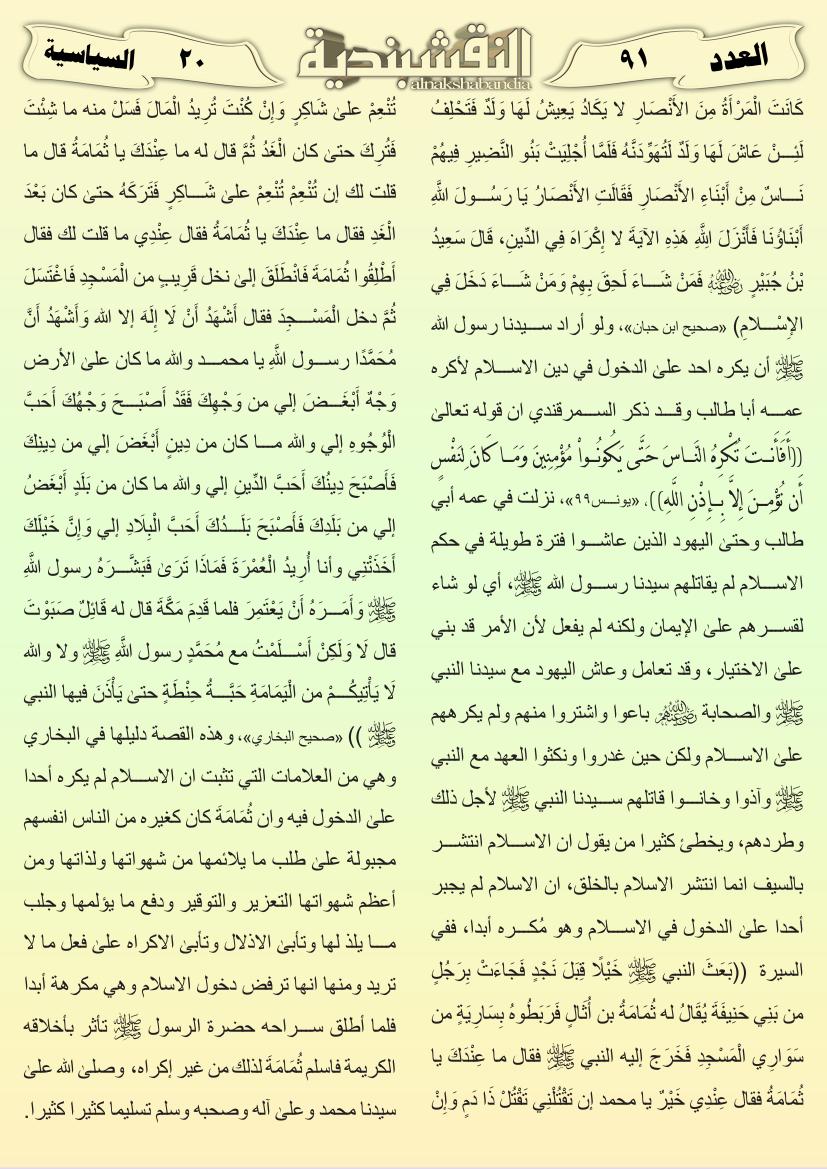 العدد ٩١
النقشبندية
alnakshabandia
٢٠ السياسية
كَانَت الْمَرْأَةُ مِنَ الأَنْصَارِ لا يَكَادُ يَعِيشُ لَهَا وَلَدٌ فَتَحْلِفُ
لَئِنْ عَاشَ لَهَا وَلَدٌ لَتُهَوِّدَنَّهُ فَلَمَّا أُجْلِيَتْ بَنُو النَّضِيرِ فِيهُمْ
نَاسٌ مِنْ أَبْنَاءِ الأَنْصَارِ فَقَالَتِ الأَنْصَارُ يَا رَسُولَ اللَّهِ
أَبْنَاؤُنَا فَأَنْزَلَ اللَّهُ هَذِهِ الآيَةَ لا إِكْرَاهَ فِي الدِّينِ، قَالَ سَعِيدُ
بْنُ جُبَيْرٍ رضي الله عنه فَمَنْ شَاءَ لَحِقَ بِهِمْ وَمَنْ شَاءَ دَخَلَ فِي
الإِسْلامِ) «صحيح ابن حبان»، ولو أراد سيدنا رسول الله
ﷺ أن يكره احد على الدخول في دين الاسلام لأكره
عمه أبا طالب وقد ذكر السمرقندي ان قوله تعالى
((أَفَأَنتَ تُكْرِهُ النَّاسَ حَتَّى يَكُونُواْ مُؤْمِنِينَ وَمَا كَانَ لِنَفْسٍ
أَن تُؤْمِنَ إِلاَّ بِإِذْنِ اللَّهِ)). «يونس٩٩»، نزلت في عمه أبي
طالب وحتى اليهود الذين عاشوا فترة طويلة في حكم
الاسلام لم يقاتلهم سيدنا رسول الله ﷺ، أي لو شاء
لقسرهم على الإيمان ولكنه لم يفعل لأن الأمر قد بني
على الاختيار، وقد تعامل وعاش اليهود مع سيدنا النبي
ﷺ والصحابة رضي الله عنهم باعوا واشتروا منهم ولم يكرههم
على الاسلام ولكن حين غدروا ونكثوا العهد مع النبي
ﷺ وآذوا وخانوا قاتلهم سيدنا النبي ﷺ لأجل ذلك
وطردهم، ويخطئ كثيرا من يقول ان الاسلام انتشر
بالسيف انما انتشر الاسلام بالخلق، ان الاسلام لم يجبر
أحدا على الدخول في الاسلام وهو مُكره أبدا، ففي
السيرة ((بَعَثَ النبي ﷺ خَيْلًا قِبَلَ نَجْدٍ فَجَاءَتْ بِرَجُلٍ
من بَنِي حَنِيفَةَ يُقَالُ له ثُمَامَةُ بن أُثَالٍ فَرَبَطُوهُ بِسَارِيَةٍ من
سَوَارِي الْمَسْجِدِ فَخَرَجَ إليه النبي ﷺ فقال ما عِنْدَكَ يا
ثُمَامَةُ فقال عِنْدِي خَيْرٌ يا محمد إن تَقْتُلْنِي تَقْتُلْ ذَا دَمٍ وَإِنْ
تُنْعِمْ على شَاكِرٍ وَإِنْ كُنْتَ تُرِيدُ الْمَالَ فَسَلْ منه ما شِئْتَ
فَتُرِكَ حتى كان الْغَدُ ثُمَّ قال له ما عِنْدَكَ يا ثُمَامَةُ قال ما
قلت لك إن تُنْعِمْ تُنْعِمْ على شَاكِرٍ فَتَرَكَهُ حتى كان بَعْدَ
الْغَدِ فقال ما عِنْدَكَ يا ثُمَامَةُ فقال عِنْدِي ما قلت لك فقال
أَطْلِقُوا ثُمَامَةَ فَانْطَلَقَ إلى نخل قَرِيبٍ من الْمَسْجِدِ فَاغْتَسَلَ
ثُمَّ دخل الْمَسْجِدَ فقال أَشْهَدُ أَنْ لَا إِلَهَ إلا الله وَأَشْهَدُ أَنَّ
مُحَمَّدًا رسول اللَّهِ يا محمد والله ما كان على الأرض
وَجْهٌ أَبْغَضَ إلي من وَجْهِكَ فَقَدْ أَصْبَحَ وَجْهُكَ أَحَبَّ
الْوُجُوهِ إلي والله ما كان من دِينٍ أَبْغَضَ إلي من دِينِكَ
فَأَصْبَحَ دِينُكَ أَحَبَّ الدِّينِ إلي والله ما كان من بَلَدٍ أَبْغَضُ
إلي من بَلَدِكَ فَأَصْبَحَ بَلَدُكَ أَحَبَّ الْبِلَادِ إلي وَإِنَّ خَيْلَكَ
أَخَذَتْنِي وأنا أُرِيدُ الْعُمْرَةَ فَمَاذَا تَرَى فَبَشَّرَهُ رسول اللَّهِ
ﷺ وَأَمَرَهُ أَنْ يَعْتَمِرَ فلما قَدِمَ مَكَّةَ قال له قَائِلٌ صَبَوْتَ
قال لَا وَلَكِنْ أَسْلَمْتُ مع مُحَمَّدٍ رسول اللَّهِ ﷺ ولا والله
لَا يَأْتِيكُمْ من الْيَمَامَةِ حَبَّةُ حِنْطَةٍ حتى يَأْذَنَ فيها النبي
ﷺ )) «صحيح البخاري»، وهذه القصة دليلها في البخاري
وهي من العلامات التي تثبت ان الاسلام لم يكره أحدا
على الدخول فيه وان ثُمَامَةَ كان كغيره من الناس انفسهم
مجبولة على طلب ما يلائمها من شهواتها ولذاتها ومن
أعظم شهواتها التعزير والتوقير ودفع ما يؤلمها وجلب
ما يلذ لها وتأبى الاذلال وتأبى الاكراه على فعل ما لا
تريد ومنها انها ترفض دخول الاسلام وهي مكرهة أبدا
فلما أطلق سراحه حضرة الرسول ﷺ تأثر بأخلاقه
الكريمة فاسلم ثُمَامَةَ لذلك من غير إكراه، وصلى الله على
سيدنا محمد وعلى آله وصحبه وسلم تسليما كثيرا كثيرا.